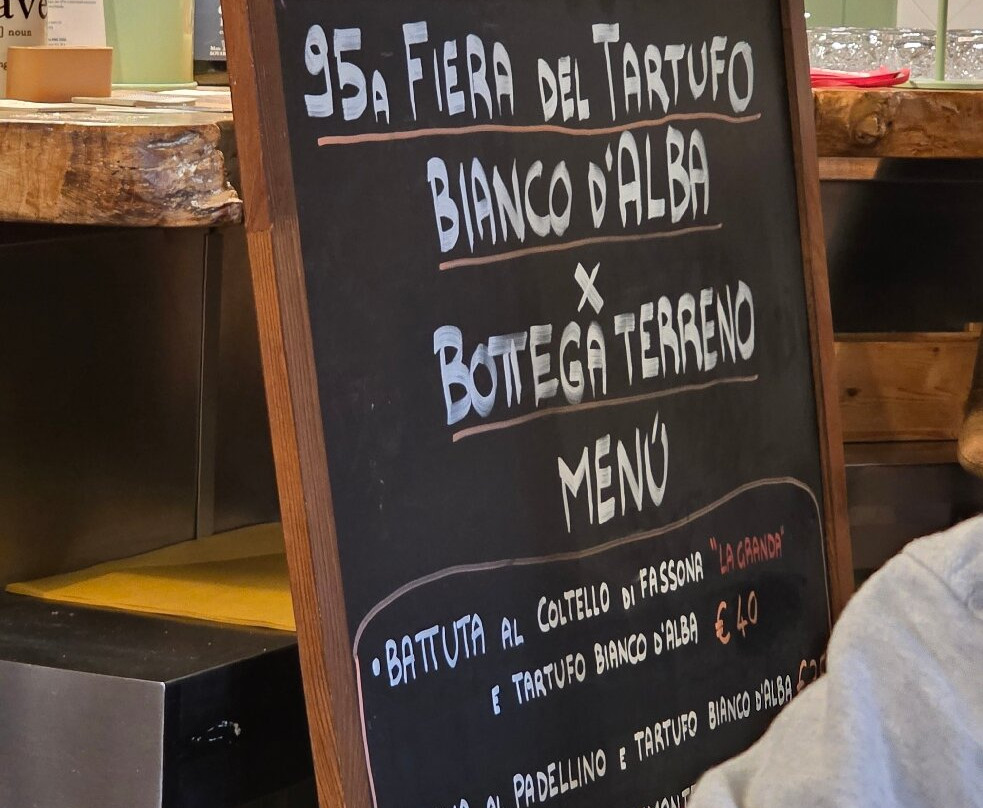 ] nous
95A FIERA DEL TARTUFO
BIANCO D'ALBA
X
BOTTEGA TERRENO
MENÚ
• BATTUTA AL COLTELLO DI FASSONA "LA GRANDA"
E TARTUFO BIANCO D'ALBA € 40
AL PADELLINO E TARTUFO BIANCO D'ALBA